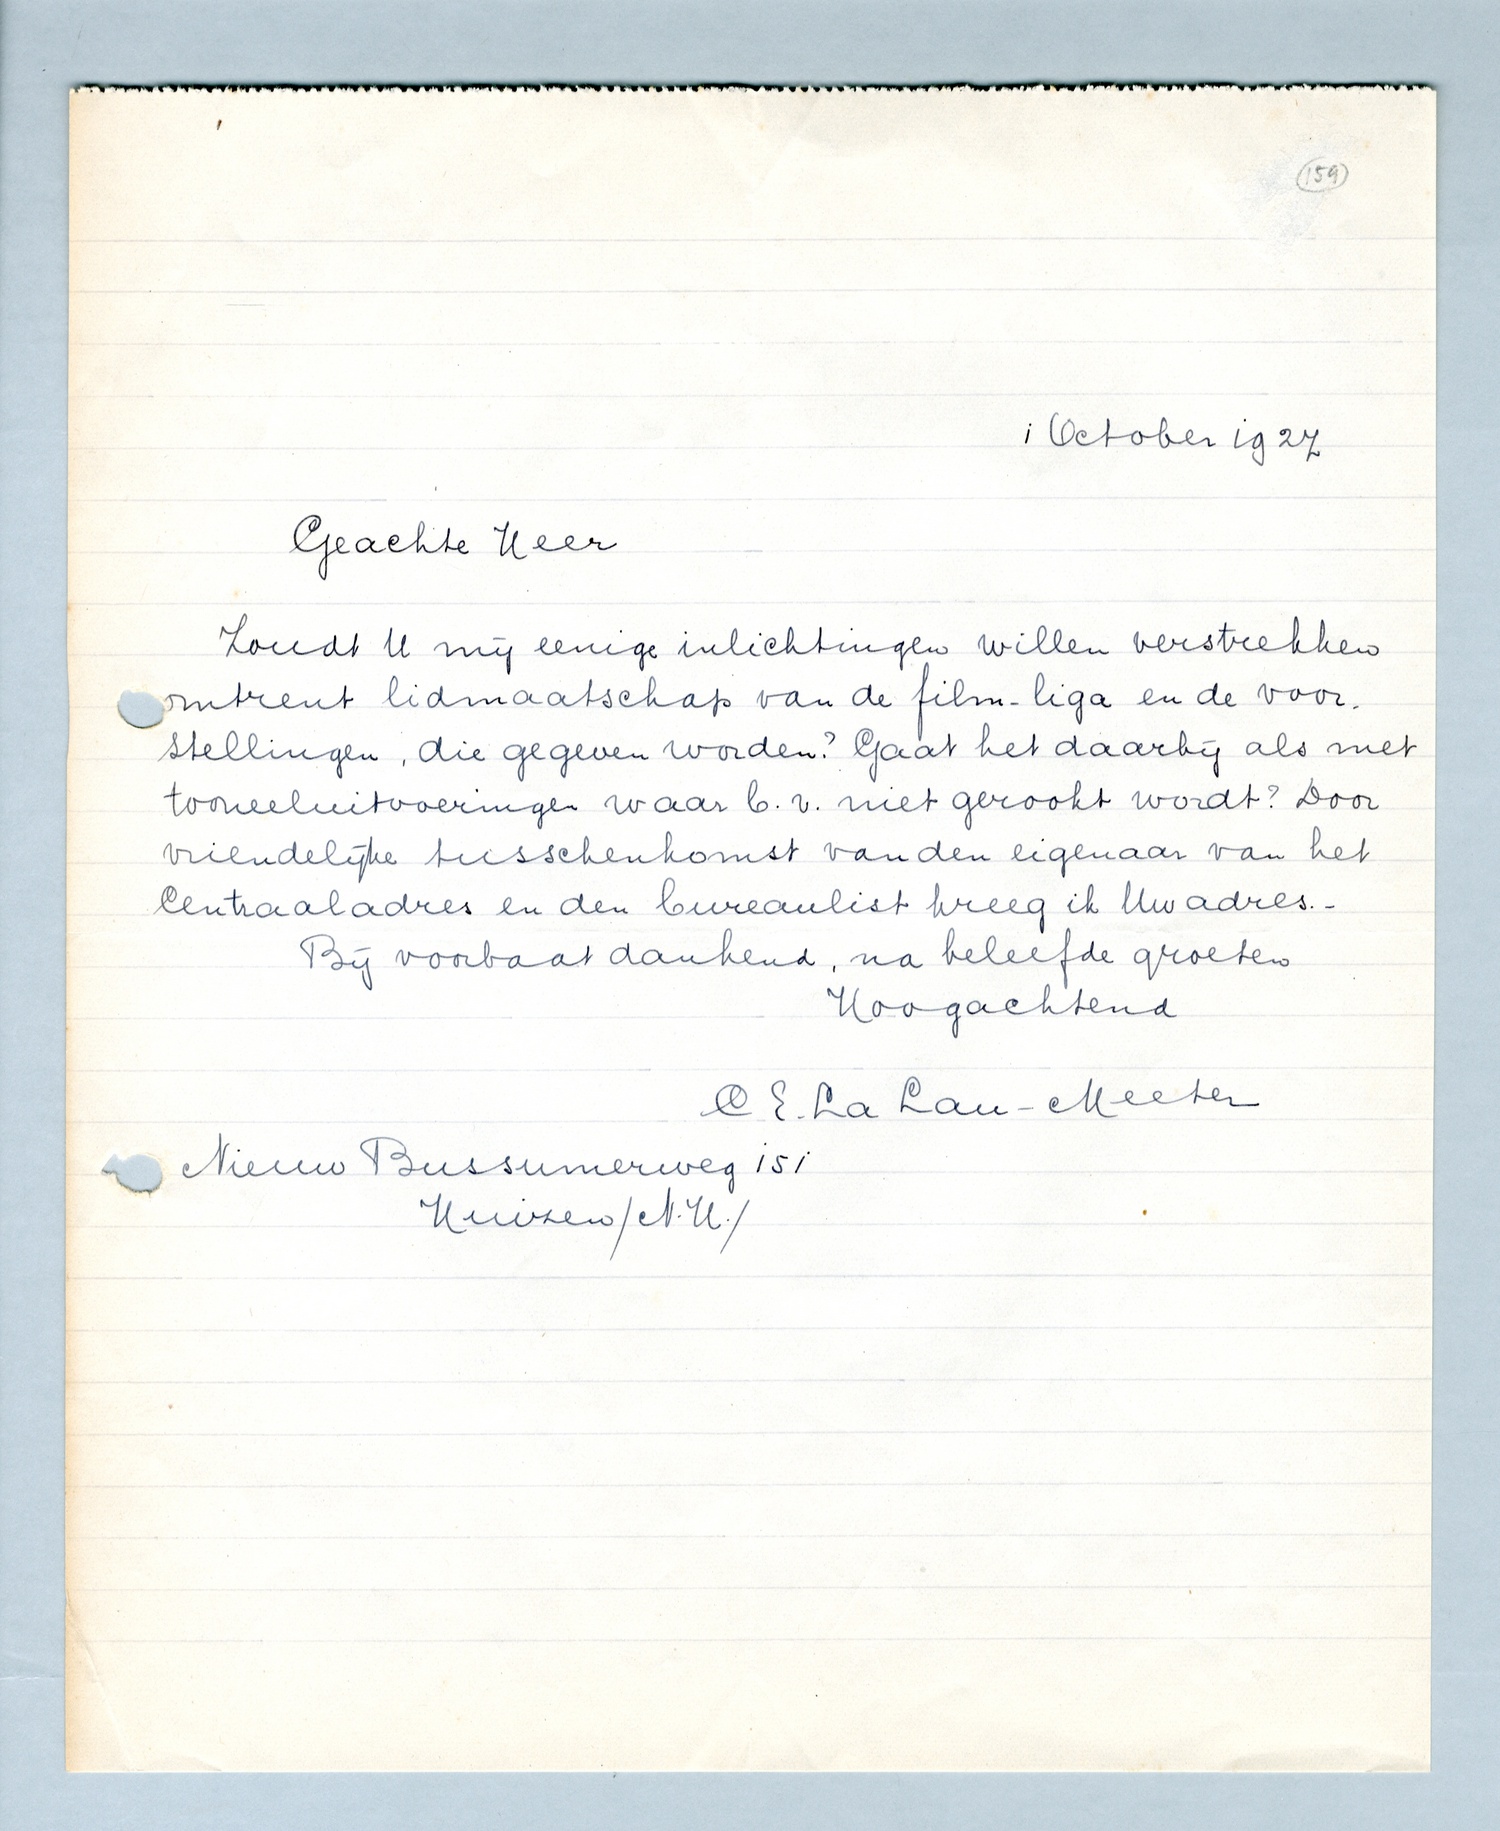 159
1 October 1927
Geachte Heer
Zoudt U mij eenige inlichtingen willen verstrekken
omtrent lidmaatschap van de film-liga en de voor-
stellingen, die gegeven worden? Gaat het daarbij als met
tooneeluitvoeringen waar b.v. niet gerookt wordt? Door
vriendelijke tusschenkomst van den eigenaar van het
Centraaladres en den bureaulist kreeg ik Uw adres.-
Bij voorbaat dankend, na beleefde groeten
Hoogachtend
C E. La Lau-Meeter
Nieuw Bussumerweg 151
Huizen/N.H./